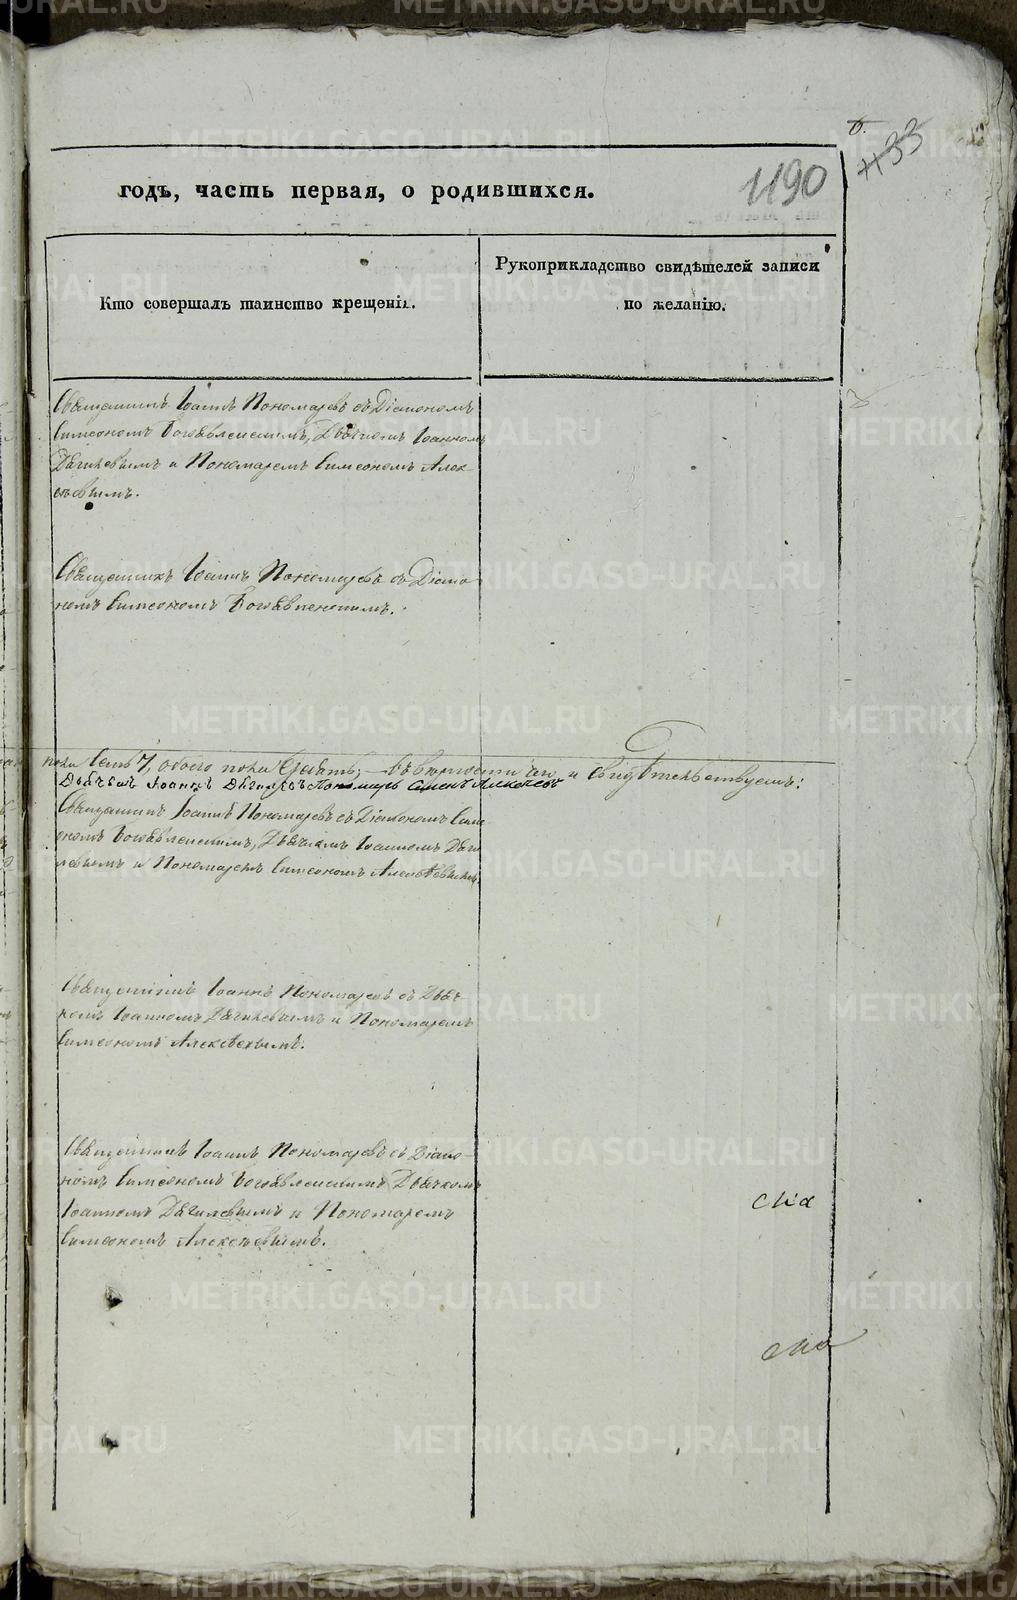 6.
433
1190
годъ, часть первая, о родившихся.
Кто совершалъ таинство крещенія.
Рукоприкладство свидѣтелей записи
по желанію.
Священникъ Іоаннъ Пономаревъ съ Діакономъ
Симеономъ Богоявленскимъ, Дьячкомъ Іоанномъ
Дягилевымъ и Пономаремъ Симеономъ Алек-
сѣевымъ.
Священникъ Іоаннъ Пономаревъ съ Діако-
номъ Симеономъ Богоявленскимъ.
пола семь 7, обоего пола Девять; въ вѣрности чего и свидѣтельствуемъ:
Дьячекъ Іоаннъ Дягилевъ Пономарь Семенъ Алексѣевъ
Священникъ Іоаннъ Пономаревъ съ Діакономъ Симе
ономъ Богоявленскимъ, Дьячкомъ Іоанномъ Дяги
левымъ и Пономаремъ Симеономъ Алексѣевымъ,
Священникъ Іоаннъ Пономаревъ съ Дьяч-
комъ Іоанномъ Дягилевымъ и Пономаремъ
Симеономъ Алексѣевымъ.
Священникъ Іоаннъ Пономаревъ съ Діако-
номъ Симеономъ Богоявленскимъ Дьячкомъ
Іоанномъ Дягилевымъ и Пономаремъ
Симеономъ Алексѣевымъ.
METRIKI.GASO-URAL.RU